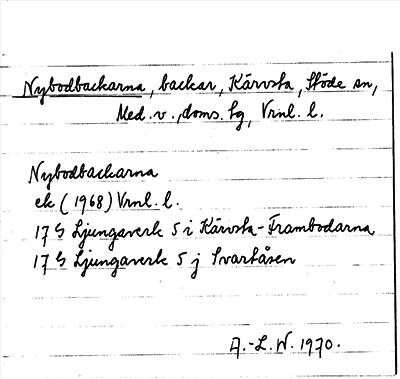 Nybodbackarna, backar, Kärvsta, Stöde sn,
Med. v., doms. hg, Vrnl. l.
Nybodbackarna
ek (1968) Vrnl. l.
17 G Ljungaverk 5 i Kärvsta-Frambodarna
17 G Ljungaverk 5 j Svartåsen
A.-L. W. 1970.